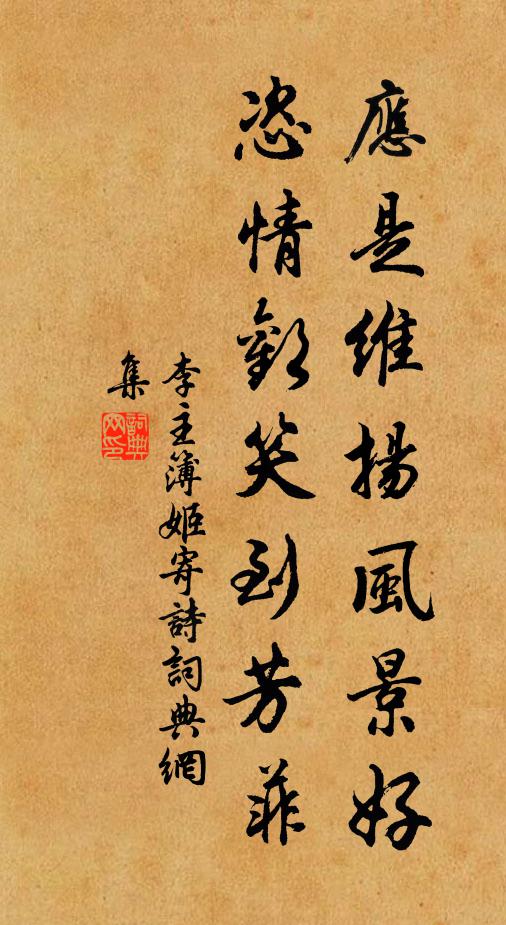 應是維揚風景好
恣情歡笑到芳菲
李主簿姬寄詩詞典網
集
詞典
网印